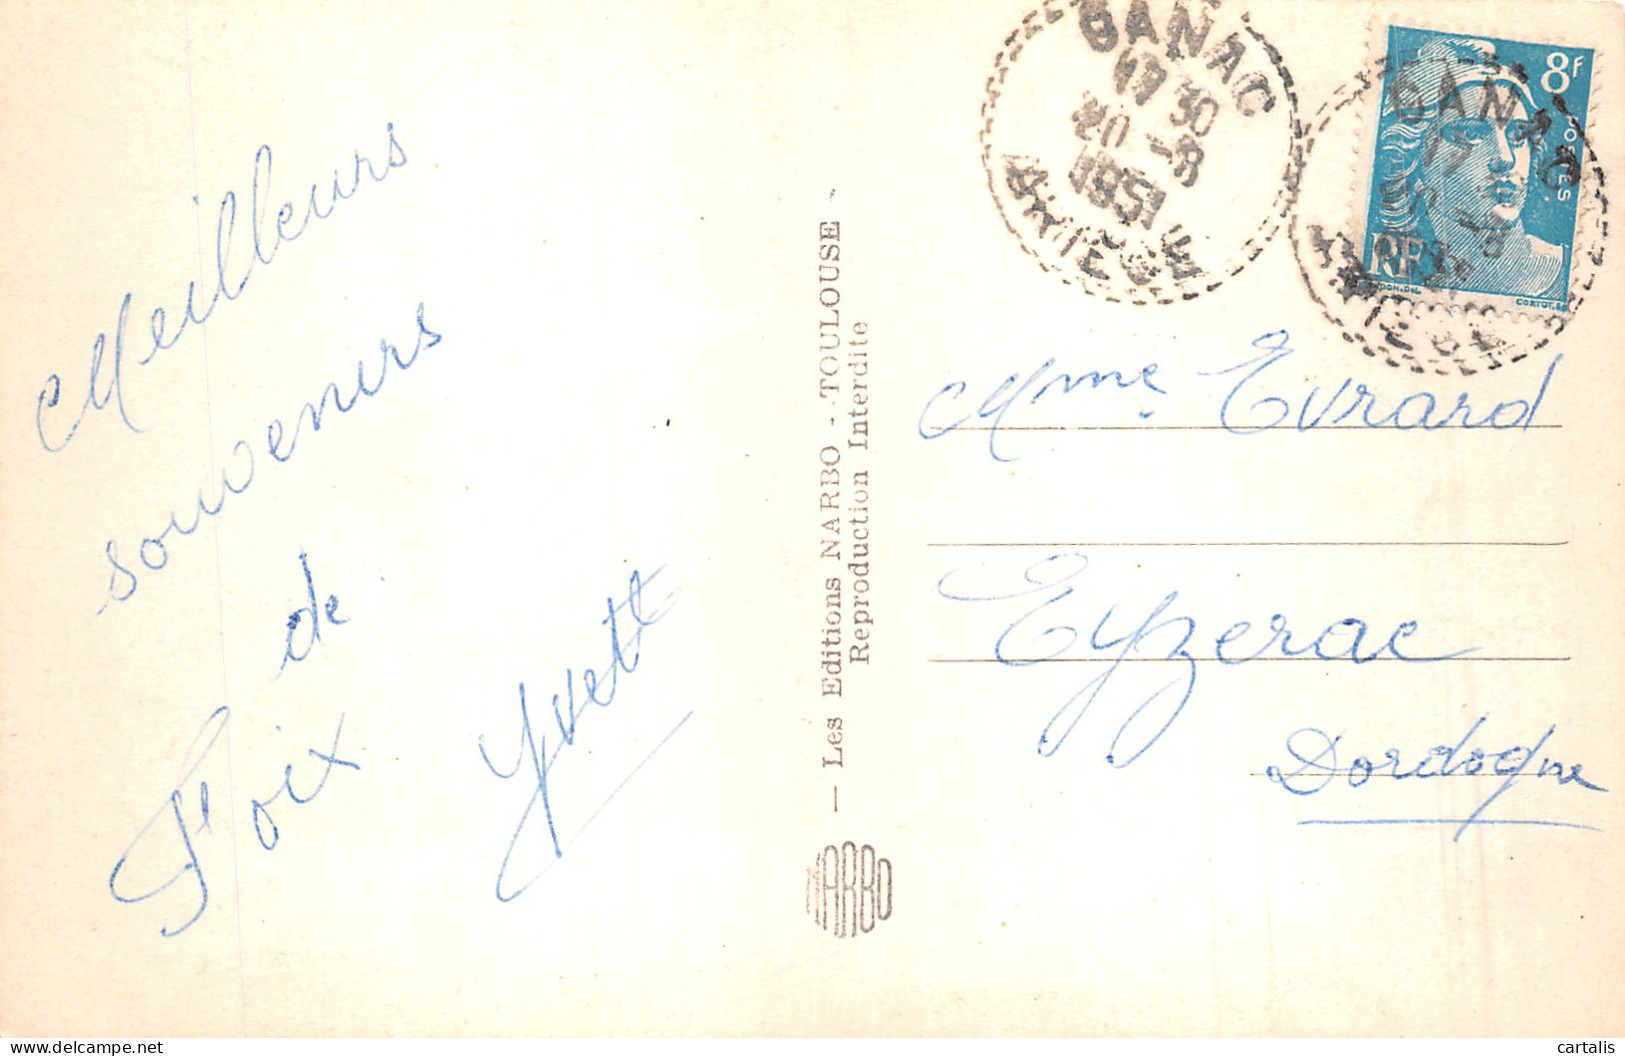 Meilleurs
souvenirs
de
Foix
Yvette
— Les Editions NARBO - TOULOUSE -
Reproduction Interdite
NARBO
GANAC
17 30
20 -8
1951
ARIÈGE
8F
POSTES
RF
GANAC
ARIÈGE
Mme Evrard
Eyzerac
Dordogne
cartalis
delcampe.net